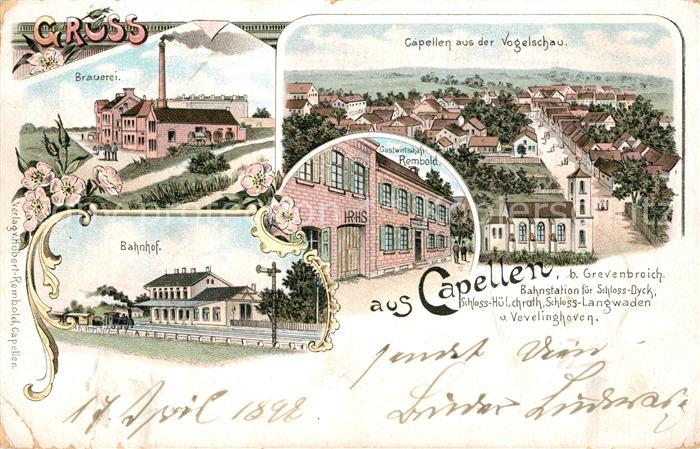 GRUSS
Capellen aus der Vogelschau.
Brauerei.
Gastwirtschaft
Rembold.
HRHS
Bahnhof.
aus Capellen, b. Grevenbroich.
Bahnstation für Schloss-Dyck,
Schloss-Hülchrath, Schloss-Langwaden
u. Vevelinghoven.
Verlag v. Hubert Rembold, Capellen.
sendet Dein
17 April 1898 Bruder